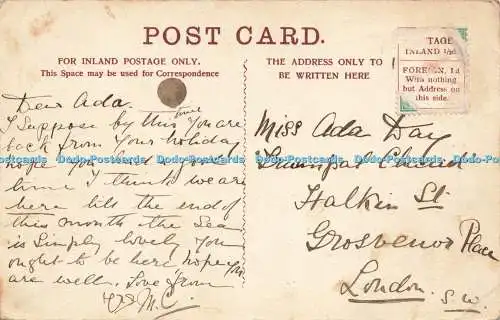 POST CARD.
FOR INLAND POSTAGE ONLY.
This Space may be used for Correspondence
THE ADDRESS ONLY TO
BE WRITTEN HERE
TAGE
INLAND ½d
FOREIGN, 1d
With nothing
but Address on
this side.
Dear Ada.
I Suppose by this time you are
back from your holiday
hope you had a good
time I think we are
here till the end of
this month the Sea
is Simply lovely you
ought to be here hope you
are well. Love from
M.C.
Miss Ada Day
Halkin St
Grosvenor Place
London.
S.W.
Dodo-Postcards Dodo-Postcards Dodo-Postcards Dodo-Postcards Dodo-Postcards